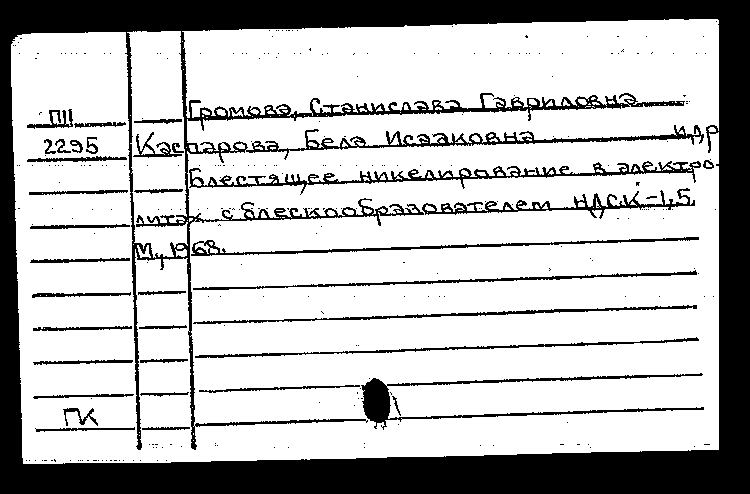 Громова, Станислава Гавриловна
ПII
2295 Каспарова, Бела Исааковна и др
Блестящее никелирование в электро-
литах с блескообразователем НДСК-1,5.
М., 1968.
ПК